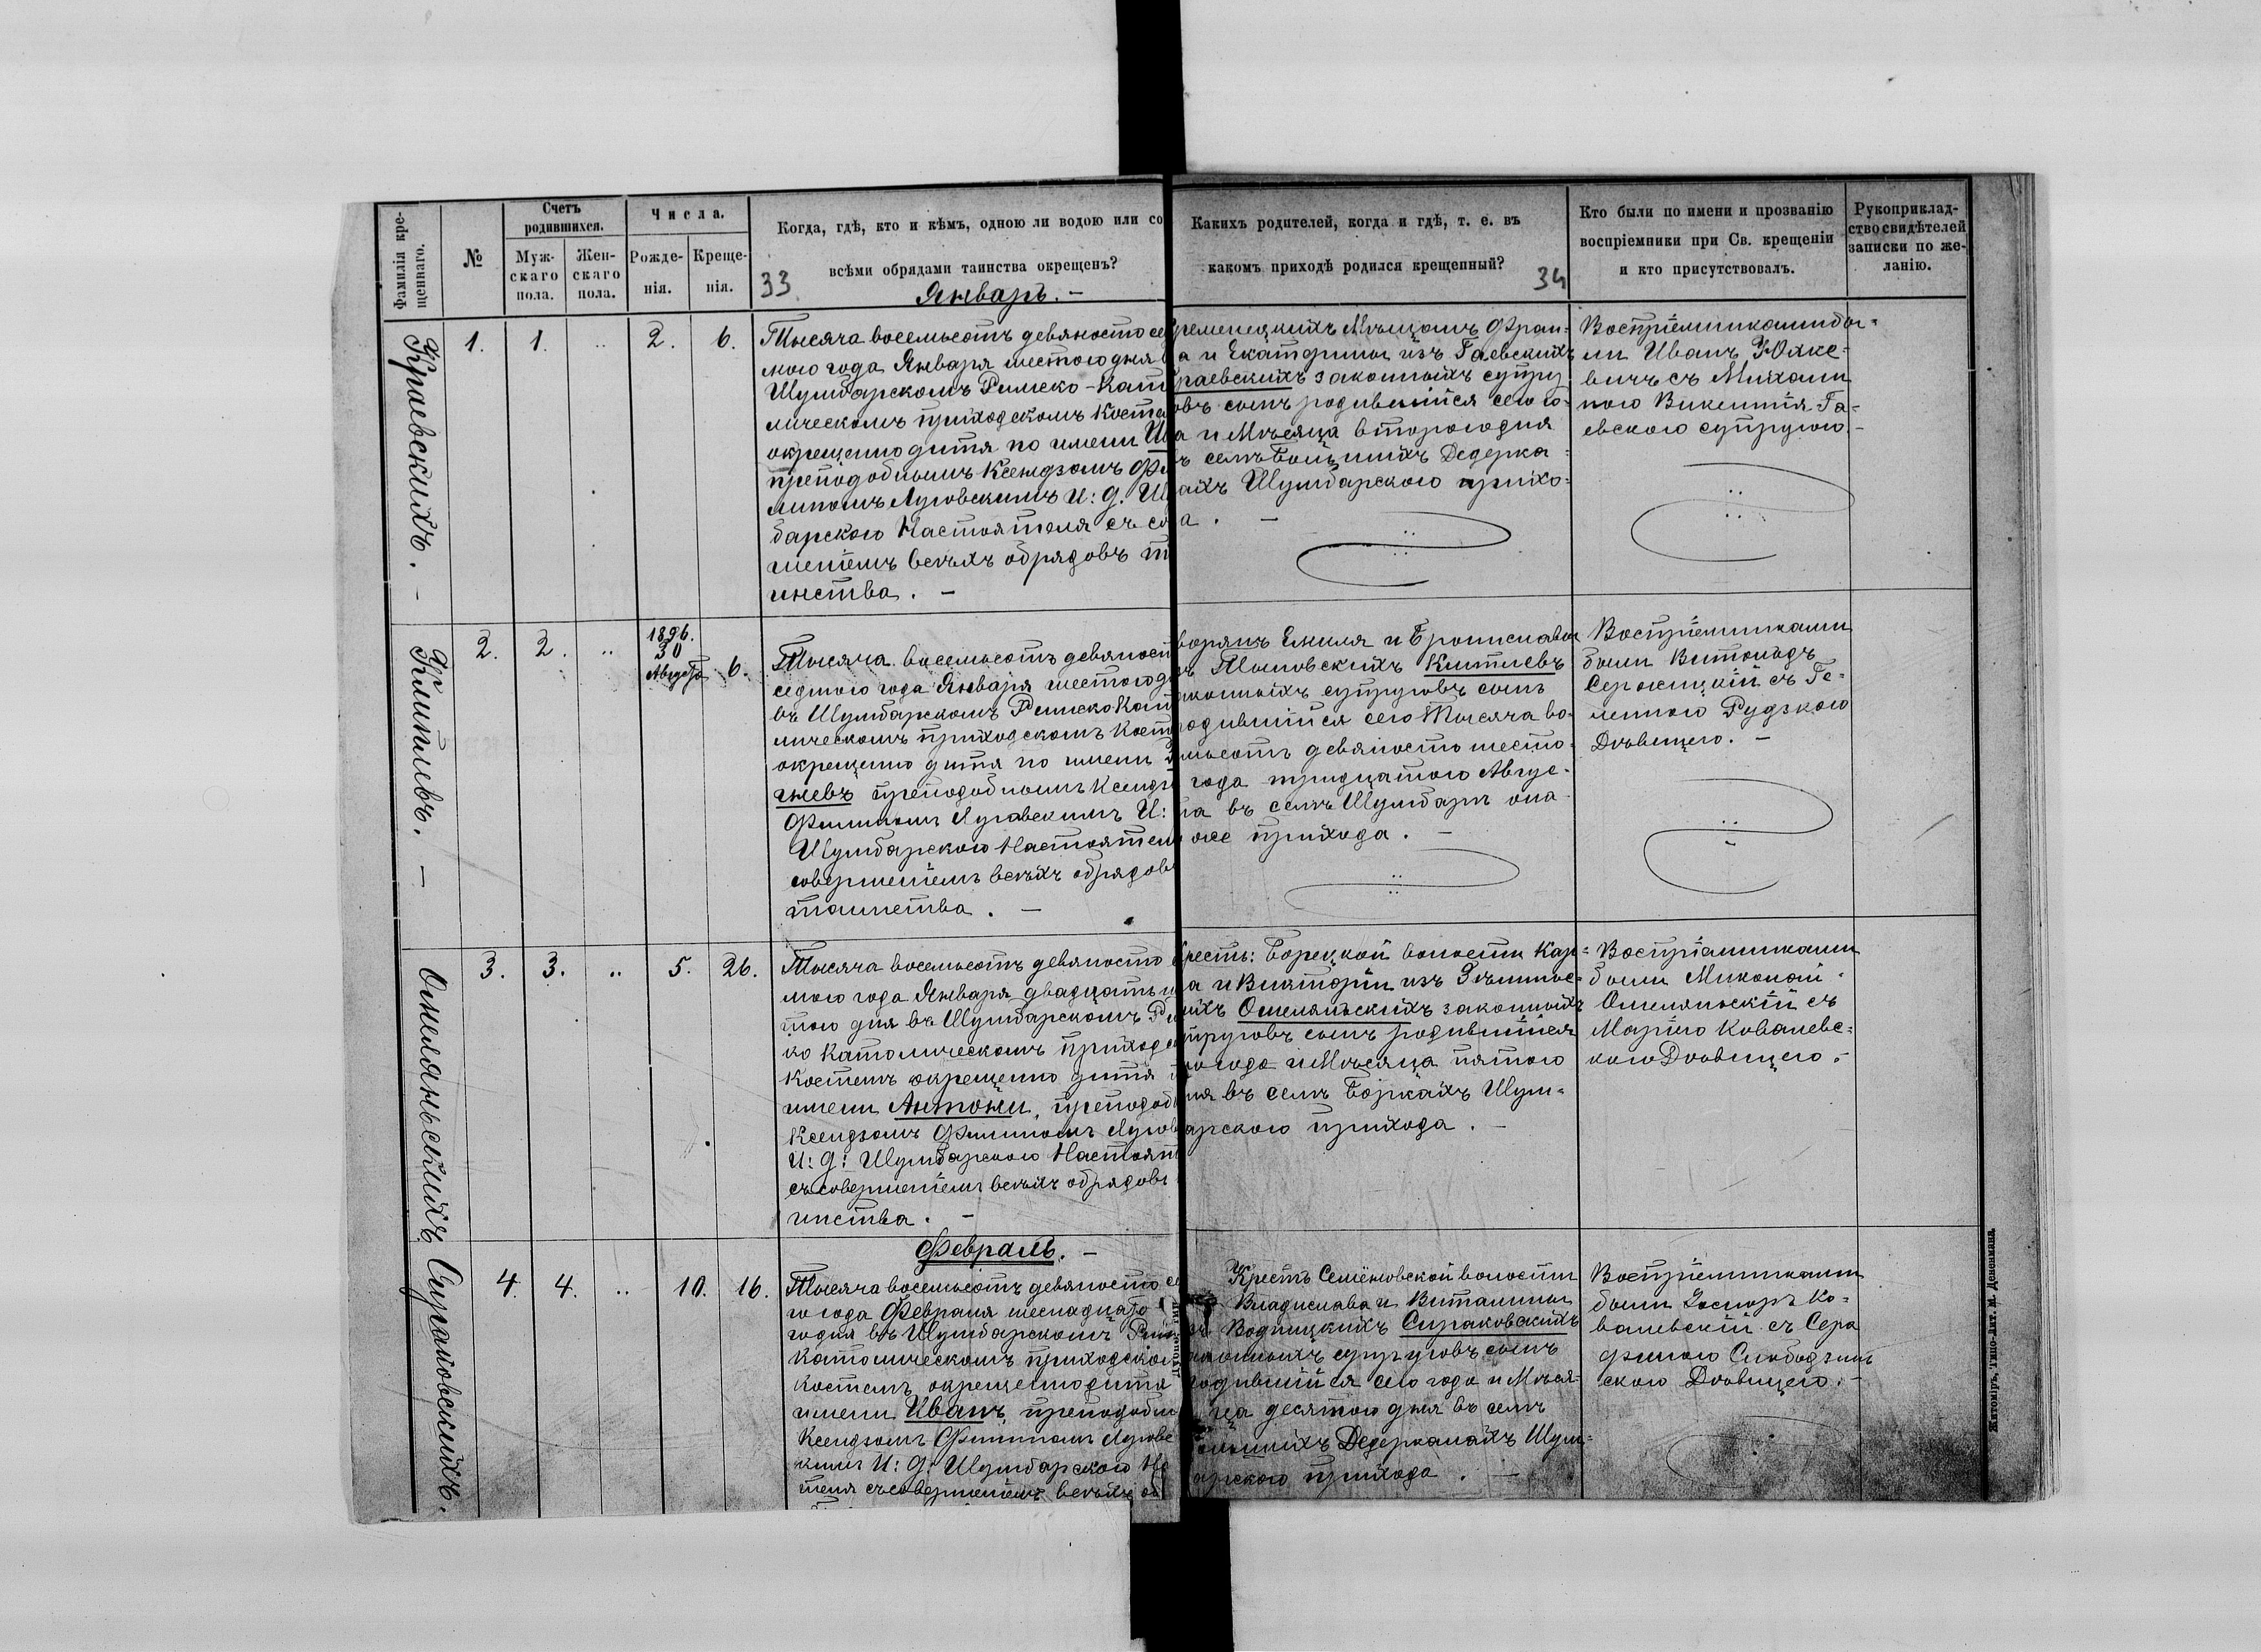 Фамилія кре-
щеннаго.
№
Счетъ
родившихся.
Муж-
скаго
пола.
Жен-
скаго
пола.
Числа.
Рожде-
нія.
Креще-
нія.
Когда, гдѣ, кто и кѣмъ, одною ли водою или со
всѣми обрядами таинства окрещенъ?
33
Январь. –
Каких родителей, когда и гдѣ, т. е. въ
какомъ приходѣ родился крещенный?
34
Кто были по имени и прозванію
воспріемники при Св. крещеніи
и кто присутствовалъ.
Рукоприклад-
ство свидѣтелей
записки по же-
ланію.
Краевскихъ. –
1.
1.
..
2.
6.
Тысяча восемьсотъ девяносто се
мого года Января шестого дня
Шумбарскомъ Римско-Като
лическомъ приходскомъ Косте
окрещено дитя по имени
преподобнымъ Ксендзомъ Фи
липомъ Луговскимъ И: д. Шу
барскаго Настоятеля съ со
шеніемъ всѣхъ обрядовъ т
инства. –
ременецкихъ Мѣщанъ Фран-
а и Екатерины изъ Гаевскихъ
раевскихъ законныхъ супру
овъ сынъ родившійся сего го-
а и Мѣсяца второго дня
ъ селѣ Большихъ Дедерка-
ахъ Шумбарского прихо-
а. –
Воспріемниками бы-
ли Иванъ Юхке-
вичъ съ Михали
ною Викентія Га-
евского супругою. –
Китилевъ. –
2.
2.
..
1896.
30
Августа
6.
Тысяча восемьсотъ девяност
седмого года Января шестого д
въ Шумбарскомъ Римско Като
лическомъ приходскомъ Косте
окрещено дитя по имени
гневъ преподобнымъ Ксендз
Филипомъ Луговскимъ И:
Шумбарского Настоятел
совершеніемъ всѣхъ обрядовъ
таинства. –
ворянъ Емиля и Брониславы
ъ Ильновскихъ Китилевъ
аконныхъ супруговъ сынъ
одившійся сего Тысяча во-
мьсотъ девяносто шесто-
года тридцатого Авгус-
та въ селѣ Шумбарѣ она
оже прихода. –
Воспріемниками
были Витольдъ
Серожицкій съ Ге-
леною Рудзкою
Дѣвицею. –
Омелянскихъ
3.
3.
..
5.
26.
Тысяча восемьсотъ девяносто
мого года Января двадцать ш
того дня въ Шумбарскомъ Ри
ко Католическомъ приходс
Костелѣ окрещено дитя
имени Антони, преподоб
Ксендзомъ Филипомъ Лугов
И: д: Шумбарского Настоят
съ совершеніемъ всѣхъ обрядовъ
инства. –
рестъ: Борецкой волости Кар-
а и Викторіи изъ
ихъ Омелянскихъ законныхъ
пруговъ сынъ родившійся
го года и Мѣсяца пятого
ня въ селѣ Боркахъ Шум-
арского прихода. –
Воспріемниками
были Миколай
Омелянскій съ
Маріею Ковалевс-
кою Дѣвицею. –
Сираковскихъ.
Февраль. –
4.
4.
..
10.
16.
Тысяча восемьсотъ девяносто се
го года Февраля шеснадцато
го дня въ Шумбарскомъ Рим
Католическомъ приходском
костелѣ окрещено дитя
имени Иванъ, преподобн
Ксендзомъ Филипомъ Луговс
кимъ И: д: Шумбарского На
теля съ совершеніемъ всѣхъ об
Крестъ Семёновской волости
Владислава и Виталины
Водницкихъ Сираковскихъ
аконныхъ супруговъ сынъ
родившійся сего года и Мѣся-
ца десятого дня въ селѣ
ольшихъ Дедеркалахъ Шум-
арского прихода. –
Воспріемниками
были Гаспоръ Ко-
валевскій съ Сера
финою Слободзин
скою Дѣвицею. –
Житоміръ, Типо-Лит. М. Дененмана